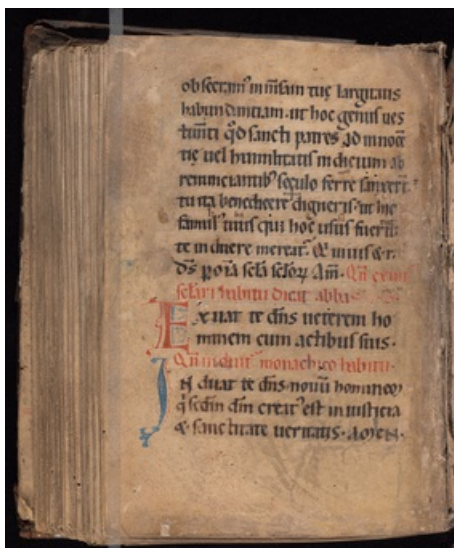 obsecram' inmsam tuę largitatis
habundantiam. ut hoc genus ues
timti qd sancti patres ad innocē
tię uel humilitatis indicium ab
renunciantib' seculo ferre sanxert.
tu ita benedicere digneris. ut hic
famul' tuus qui hoc usus fuerit.
te induere mereat'. Q' uiuis & r.
ds p oīa scla sclor. Am. Qn exuit
sclari habitu dicit abba
Exuat te dns ueterem ho
minem cum actibus suis.
Qn induit monachico habitu.
Induat te dns nouū hominem
q' scdm dm creat' est in iusticia
& sanctitate ueritatis. amen.